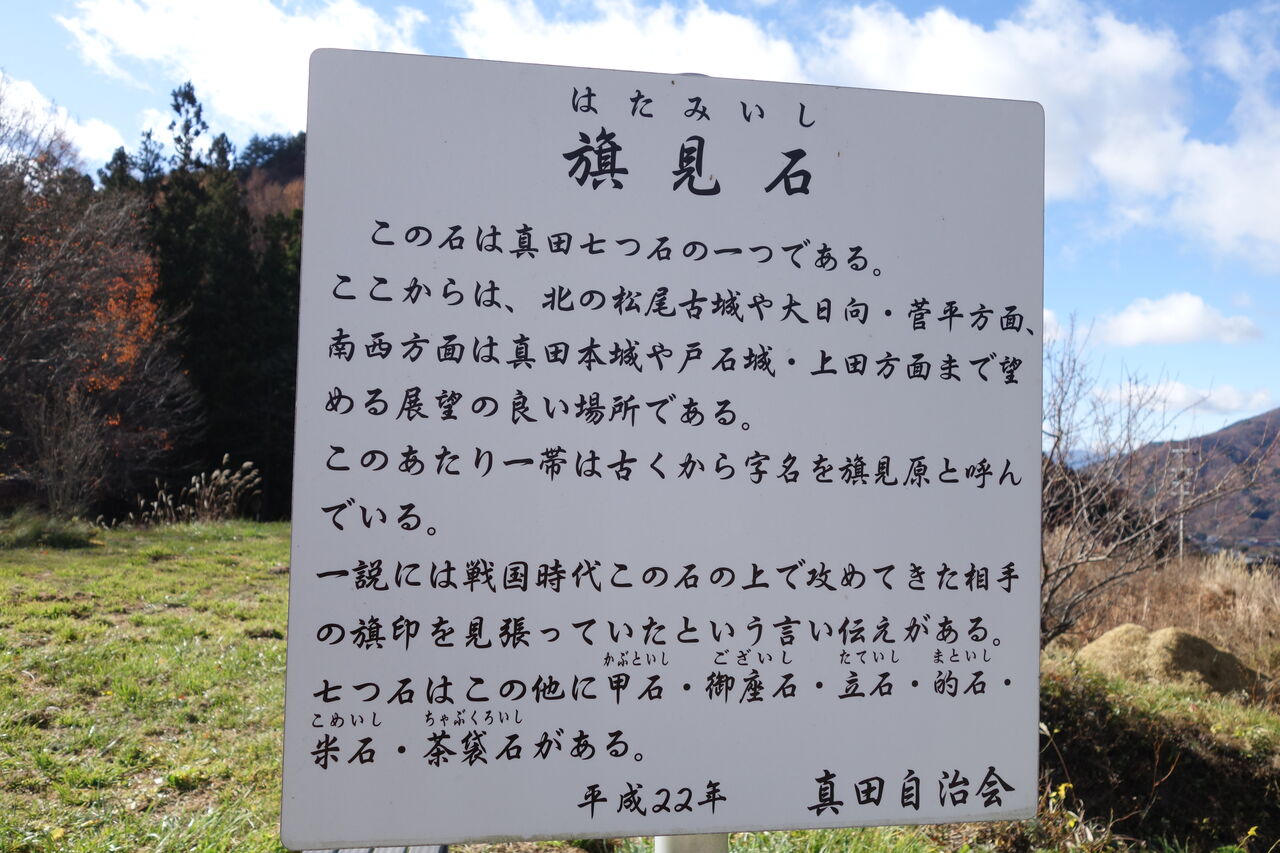 はたみいし
旗見石
この石は真田七つ石の一つである。
ここからは、北の松尾古城や大日向・菅平方面、
南西方面は真田本城や戸石城・上田方面まで望
める展望の良い場所である。
このあたり一帯は古くから字名を旗見原と呼ん
でいる。
一説には戦国時代この石の上で攻めてきた相手
の旗印を見張っていたという言い伝えがある。
かぶといし ございし たていし まといし
七つ石はこの他に甲石・御座石・立石・的石・
こめいし ちゃぶくろいし
米石・茶袋石がある。
平成22年 真田自治会